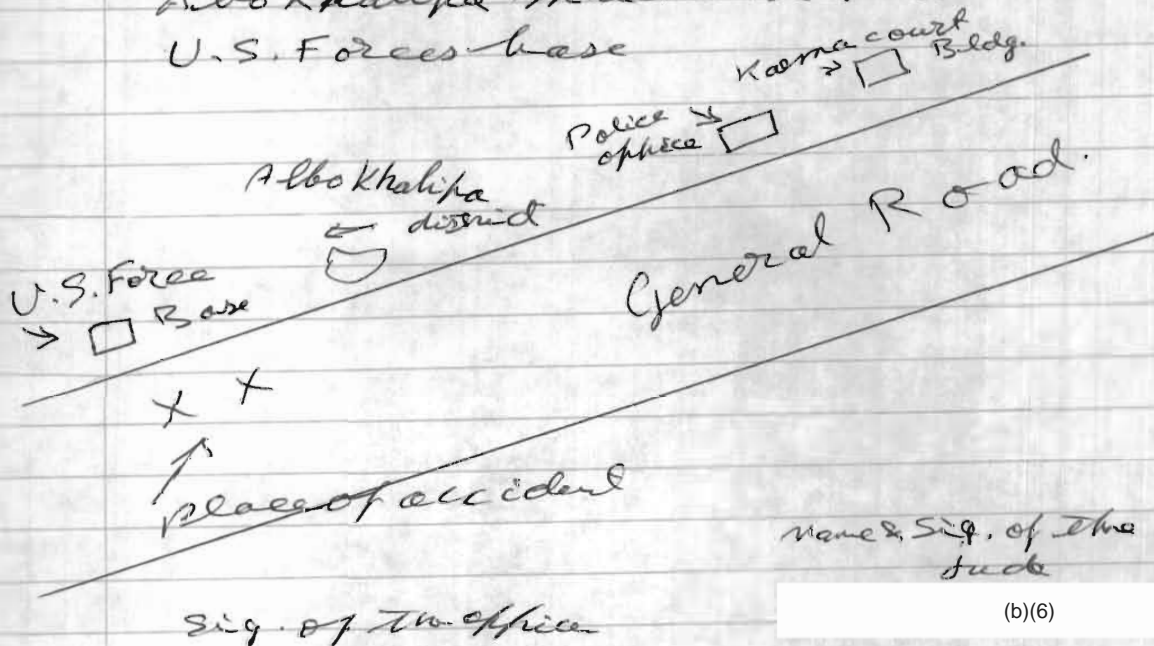 Albo Khalipa
U.S. Forces base
Karma court
Bldg.
Police
ophice
Albo Khalipa
district
General Road.
U.S. Force
Base
X X
place of accident
name & Sig. of the
Sig. of the ophice
(b)(6)